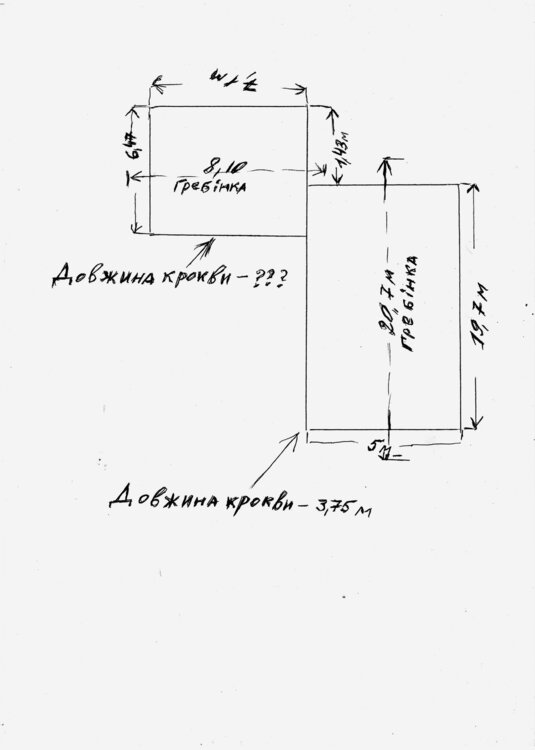 7,1 м
6,47
1,43 м
8,10
Гребінка
Довжина крокви - ???
20,7 м
Гребінка
19,7 м
5 м
Довжина крокви - 3,75 м